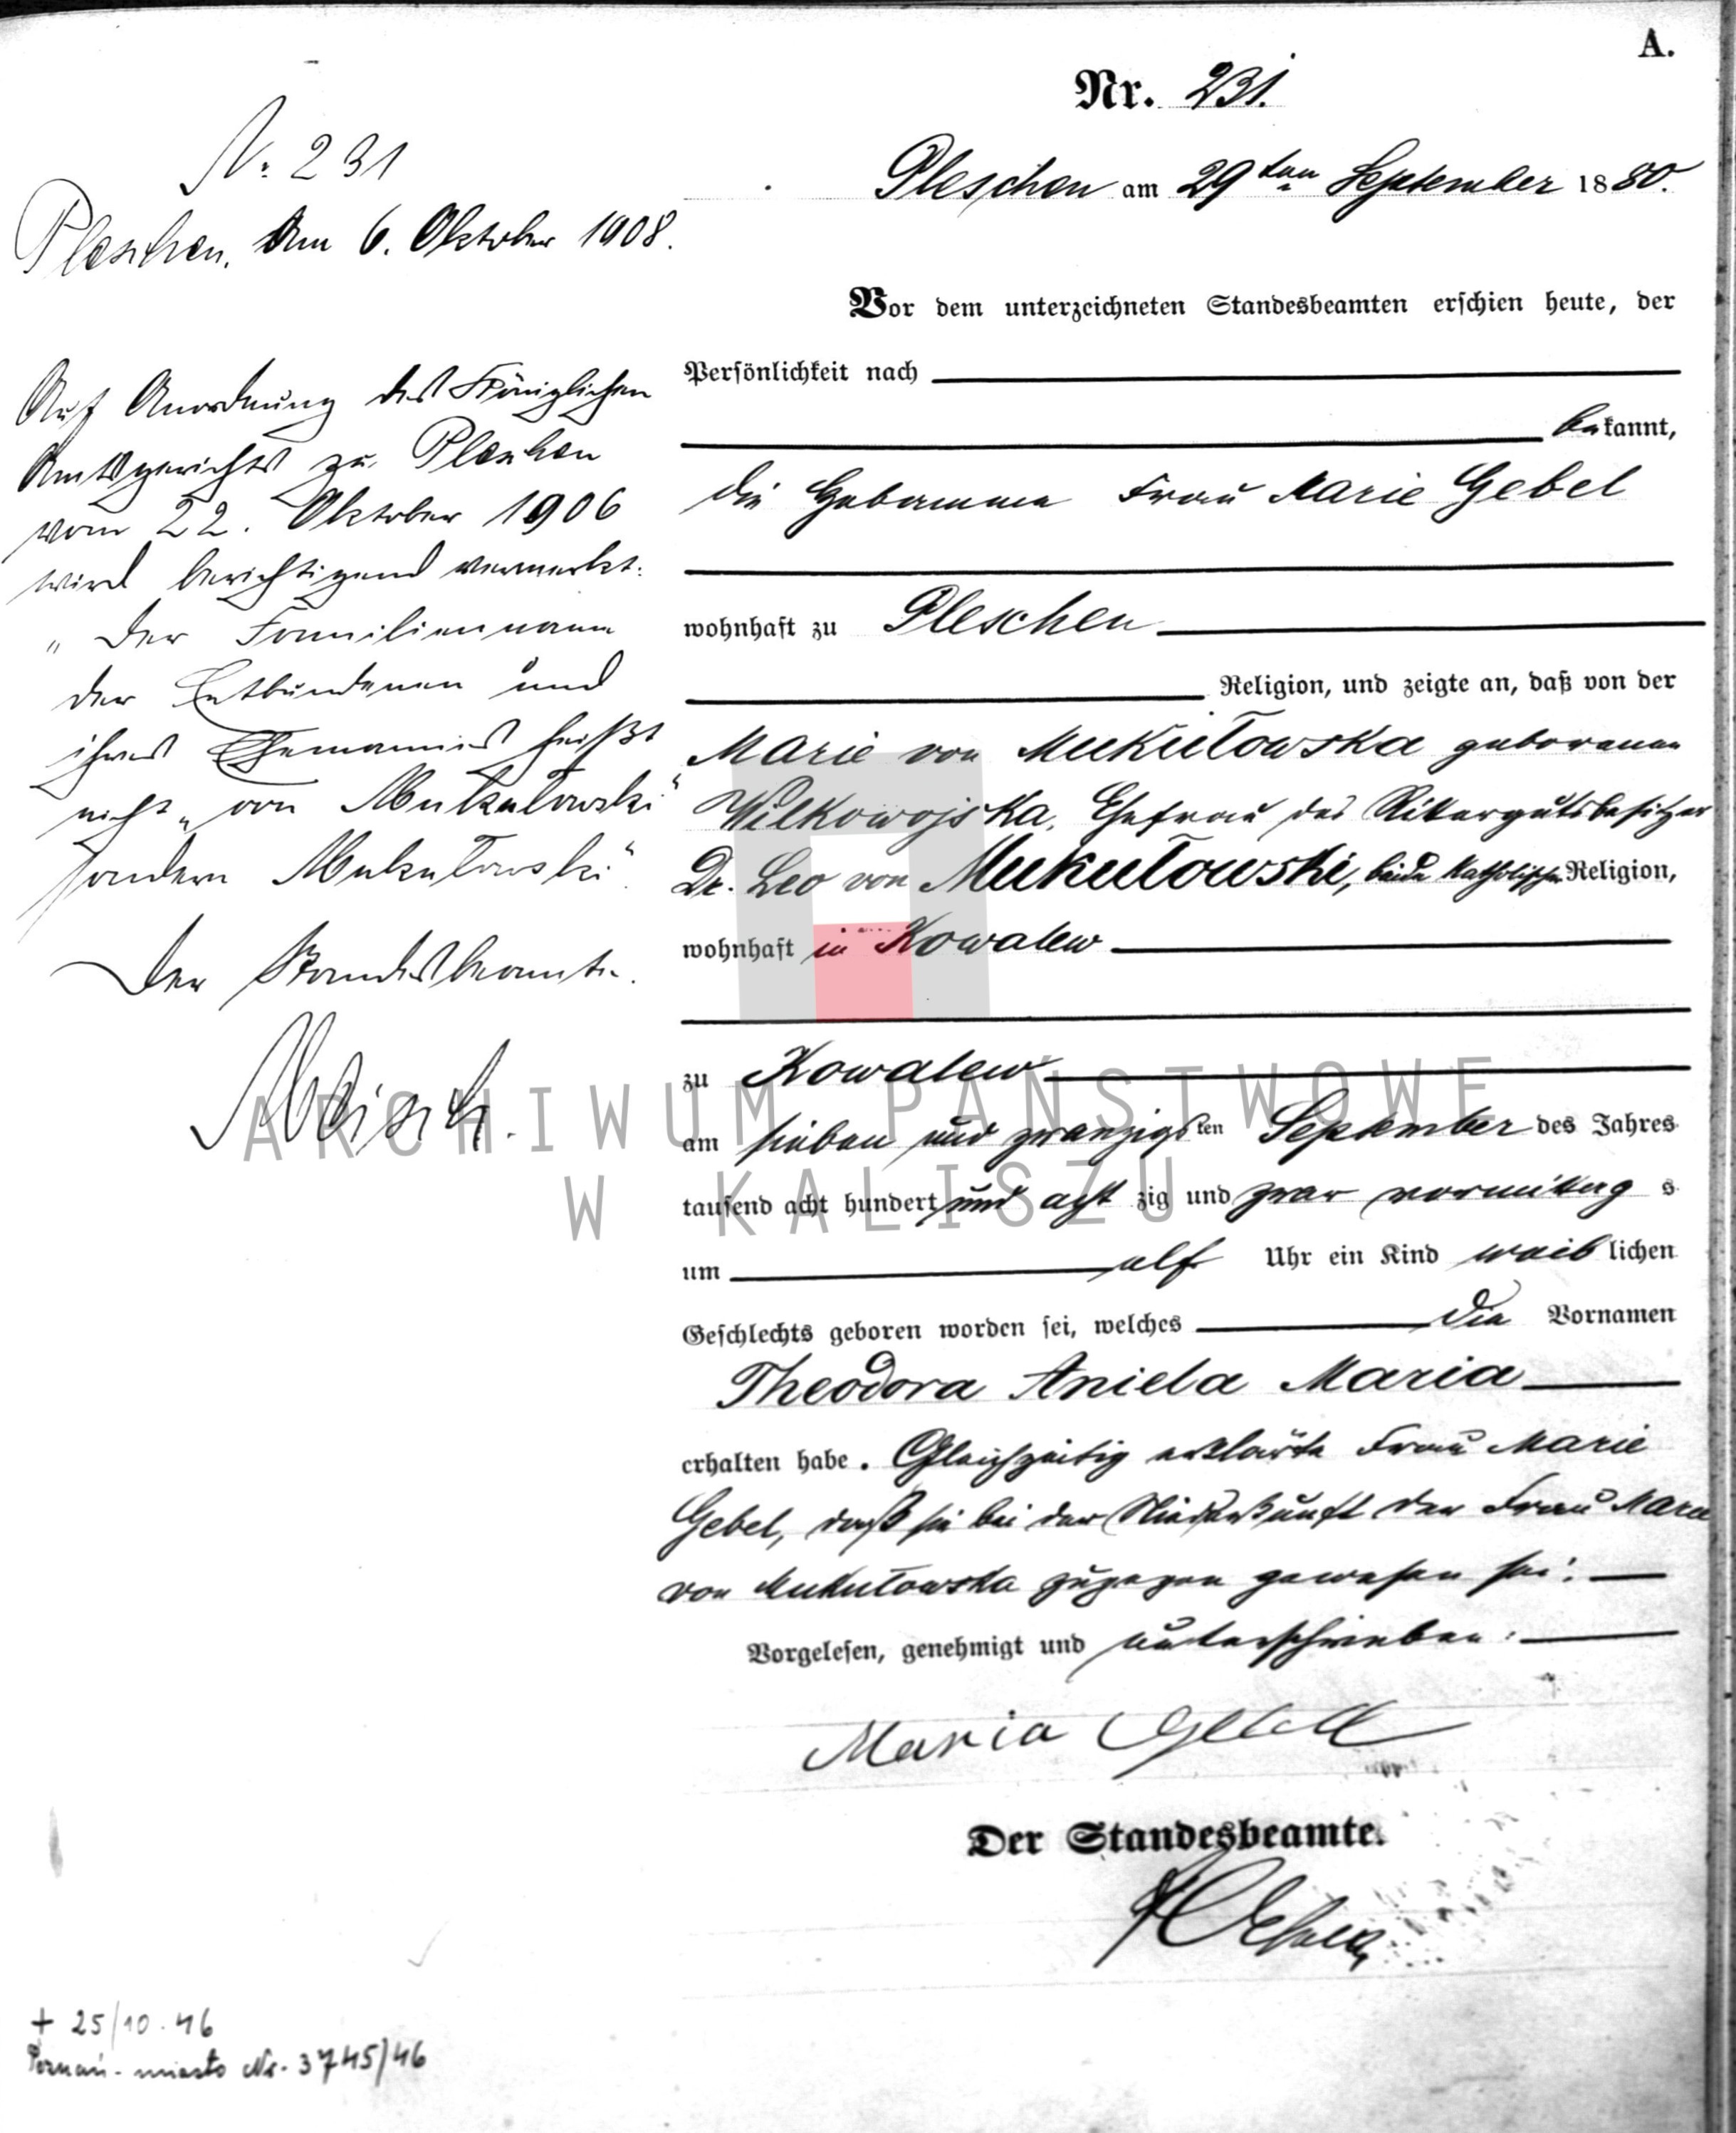 A.
Nr. 231.
Pleschen am 29ten September 1880.
Vor dem unterzeichneten Standesbeamten erschien heute, der
Persönlichkeit nach
bekannt,
die Hebamme Frau Marie Gebel
wohnhaft zu Pleschen
Religion, und zeigte an, daß von der
Marie von Mukułowska geborenen
Wilkowojska, Ehefrau des Rittergutsbesitzer
Dr. Leo von Mukułowski, beide katholischer Religion,
wohnhaft in Kowalew
zu Kowalew
am sieben und zwanzigsten September des Jahres
tausend acht hundert und acht zig und zwar vormittag s
um elf Uhr ein Kind weib lichen
Geschlechts geboren worden sei, welches die Vornamen
Theodora Aniela Maria
erhalten habe. Gleichzeitig erklärte Frau Marie
Gebel, daß sie bei der Niederkunft der Frau Marie
von Mukułowska zugegen gewesen sei.
Vorgelesen, genehmigt und unterschrieben.
Maria Gebel
Der Standesbeamte.
No 231
Pleschen, am 6. Oktober 1908.
Auf Anordnung des Königlichen
Amtsgerichts zu Pleschen
vom 22. Oktober 1906
wird berichtigend vermerkt:
„Der Familienname
der Entbundenen und
ihres Ehemannes heißt
nicht „von Mukułowski"
sondern Mukułowski".
Der Standesbeamte.
+ 25/10.46
Poznań-miasto Nr. 3745/46
ARCHIWUM PAŃSTWOWE
W KALISZU